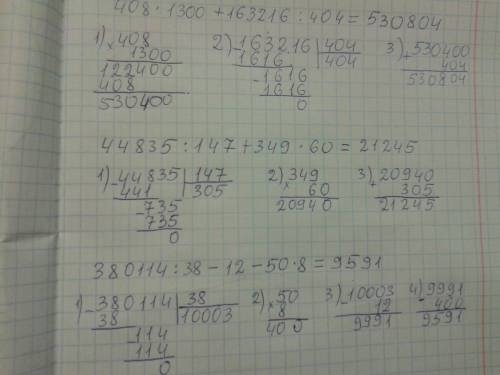 408 · 1300 + 163216 : 404 = 530804
1) × 408
1300
122400
408
530400
2) - 163216 | 404
1616 404
- 1616
1616
0
3) + 530400
404
530804
44835 : 147 + 349 · 60 = 21245
1) - 44835 | 147
441 305
- 735
735
0
2) × 349
60
20940
3) + 20940
305
21245
380114 : 38 - 12 - 50 · 8 = 9591
1) - 380114 | 38
38 10003
- 114
114
0
2) × 50
8
400
3) - 10003
12
9991
4) - 9991
400
9591